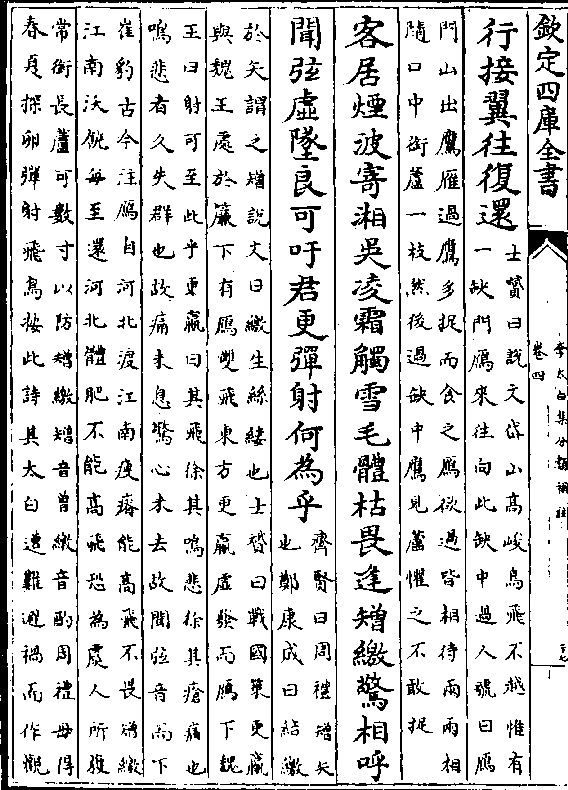 欽定四庫全書
李太白集分類補註
卷四
行接翼往復還
士贇曰說文岱山高峻鳥飛不越惟有
一缺門鴈來往向此缺中過人號曰鴈
門山出鷹鴈過鷹多捉而食之鴈欲過皆相待兩兩相
隨口中銜蘆一枝然後過缺中鷹見蘆懼之不敢捉
客居煙波寄湘吳凌霜觸雪毛體枯畏逢矰繳驚相呼
聞弦虛墜良可吁君更彈射何為乎
齊賢曰周禮矰矢
也鄭康成曰結繳
於矢謂之矰說文曰繳生絲縷也士贇曰戰國策更羸
與魏王處於簾下有鴈雙飛東方更羸虛發而鴈下魏
王曰射可至此乎更羸曰其飛徐其鳴悲徐其瘡痛也
鳴悲者久失群也故痛未息驚心未去故聞弦音而下
崔豹古今注鴈自河北渡江南瘦瘠能高飛不畏矰繳
江南沃饒每至還河北體肥不能高飛恐為虞人所獲
常銜長蘆可數寸以防矰繳矰音曾繳音酌周禮毋得
春夏探卵彈射飛鳥按此詩其太白遭難避禍而作觀